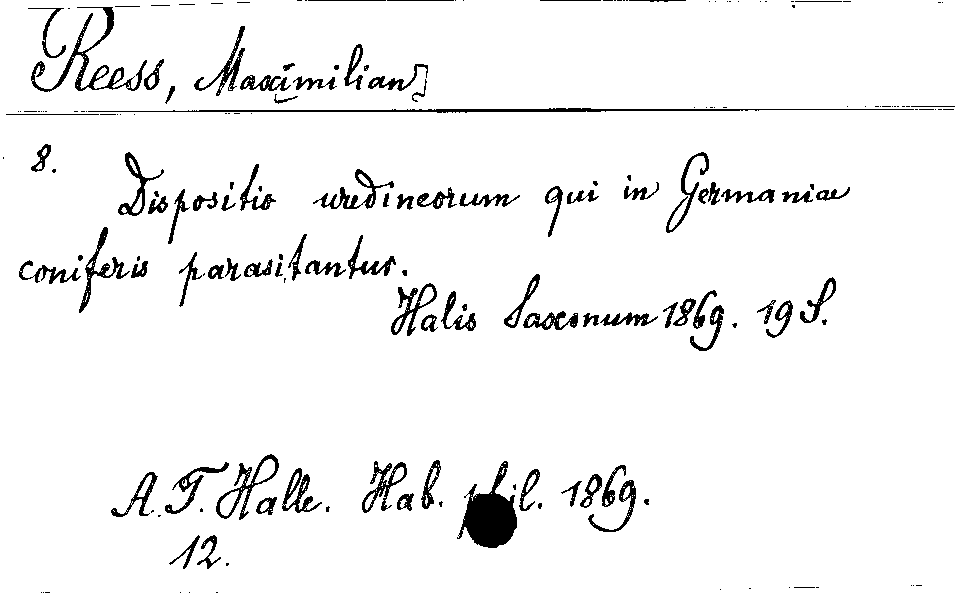 Reess, Maximilian]
8.
Dispositio uredineorum qui in Germaniae
coniferis parasitantur.
Halis Saxonum 1869. 19 S.
A.T. Halle. Hab. phil. 1869.
12.